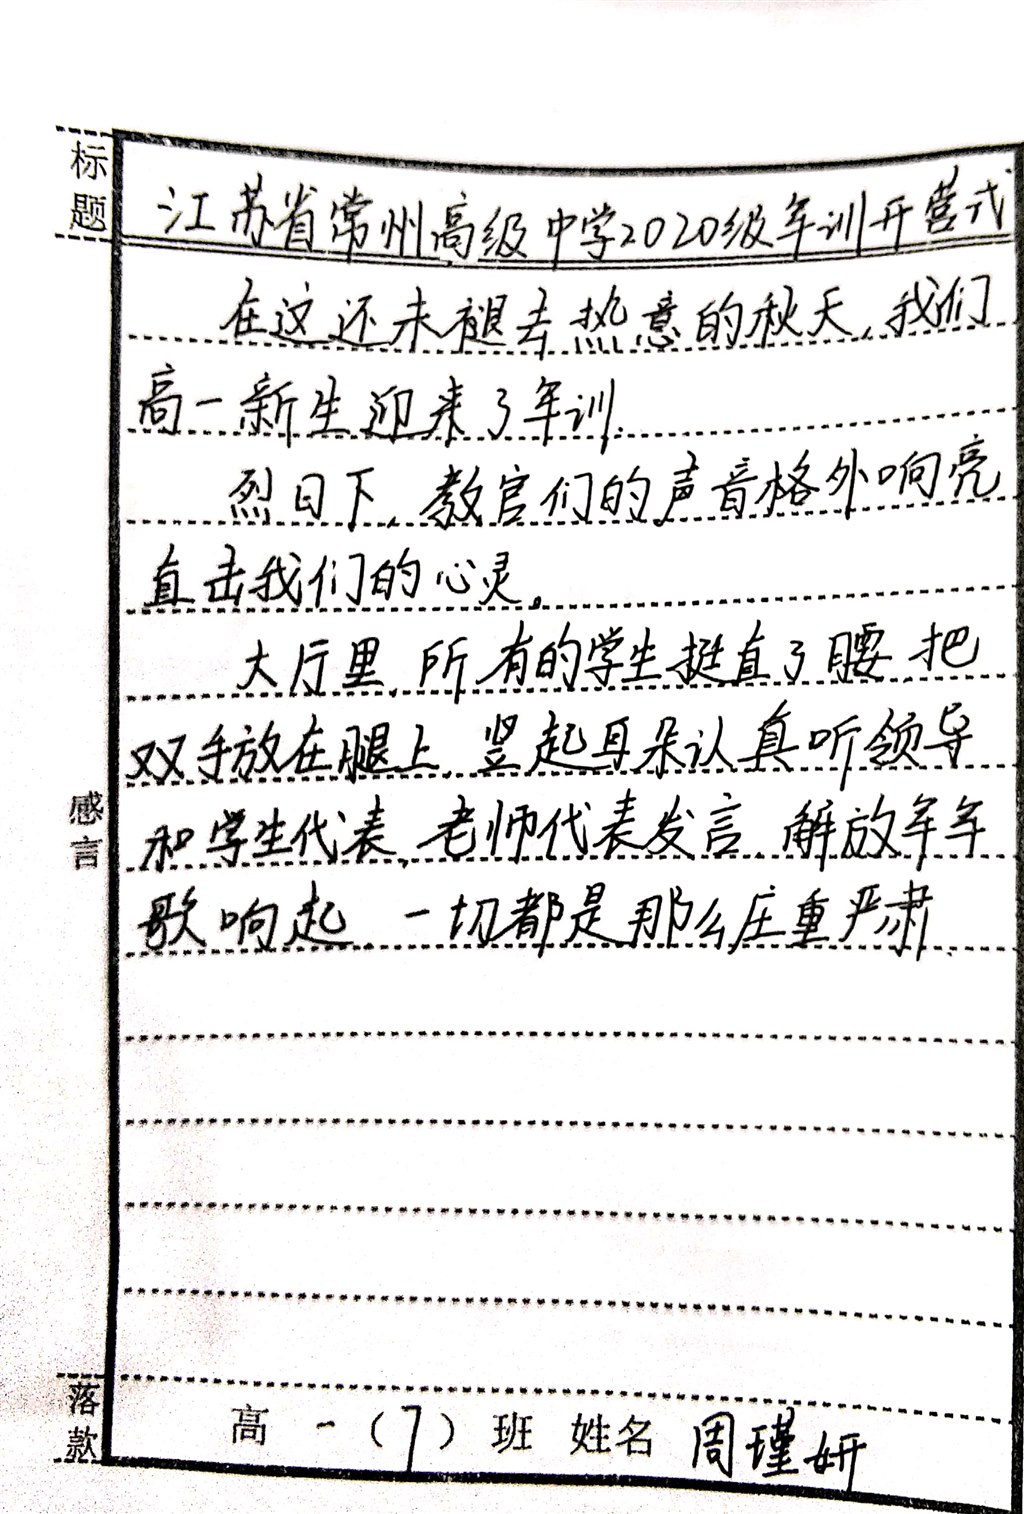 标题
江苏省常州高级中学2020级军训开营式
在这还未褪去热意的秋天,我们
高一新生迎来了军训.
烈日下,教官们的声音格外响亮
直击我们的心灵。
大厅里,所有的学生挺直了腰,把
双手放在腿上,竖起耳朵认真听领导
感言
和学生代表,老师代表发言.解放军军
歌响起,一切都是那么庄重严肃.
落款
高一(7)班 姓名 周瑾妍